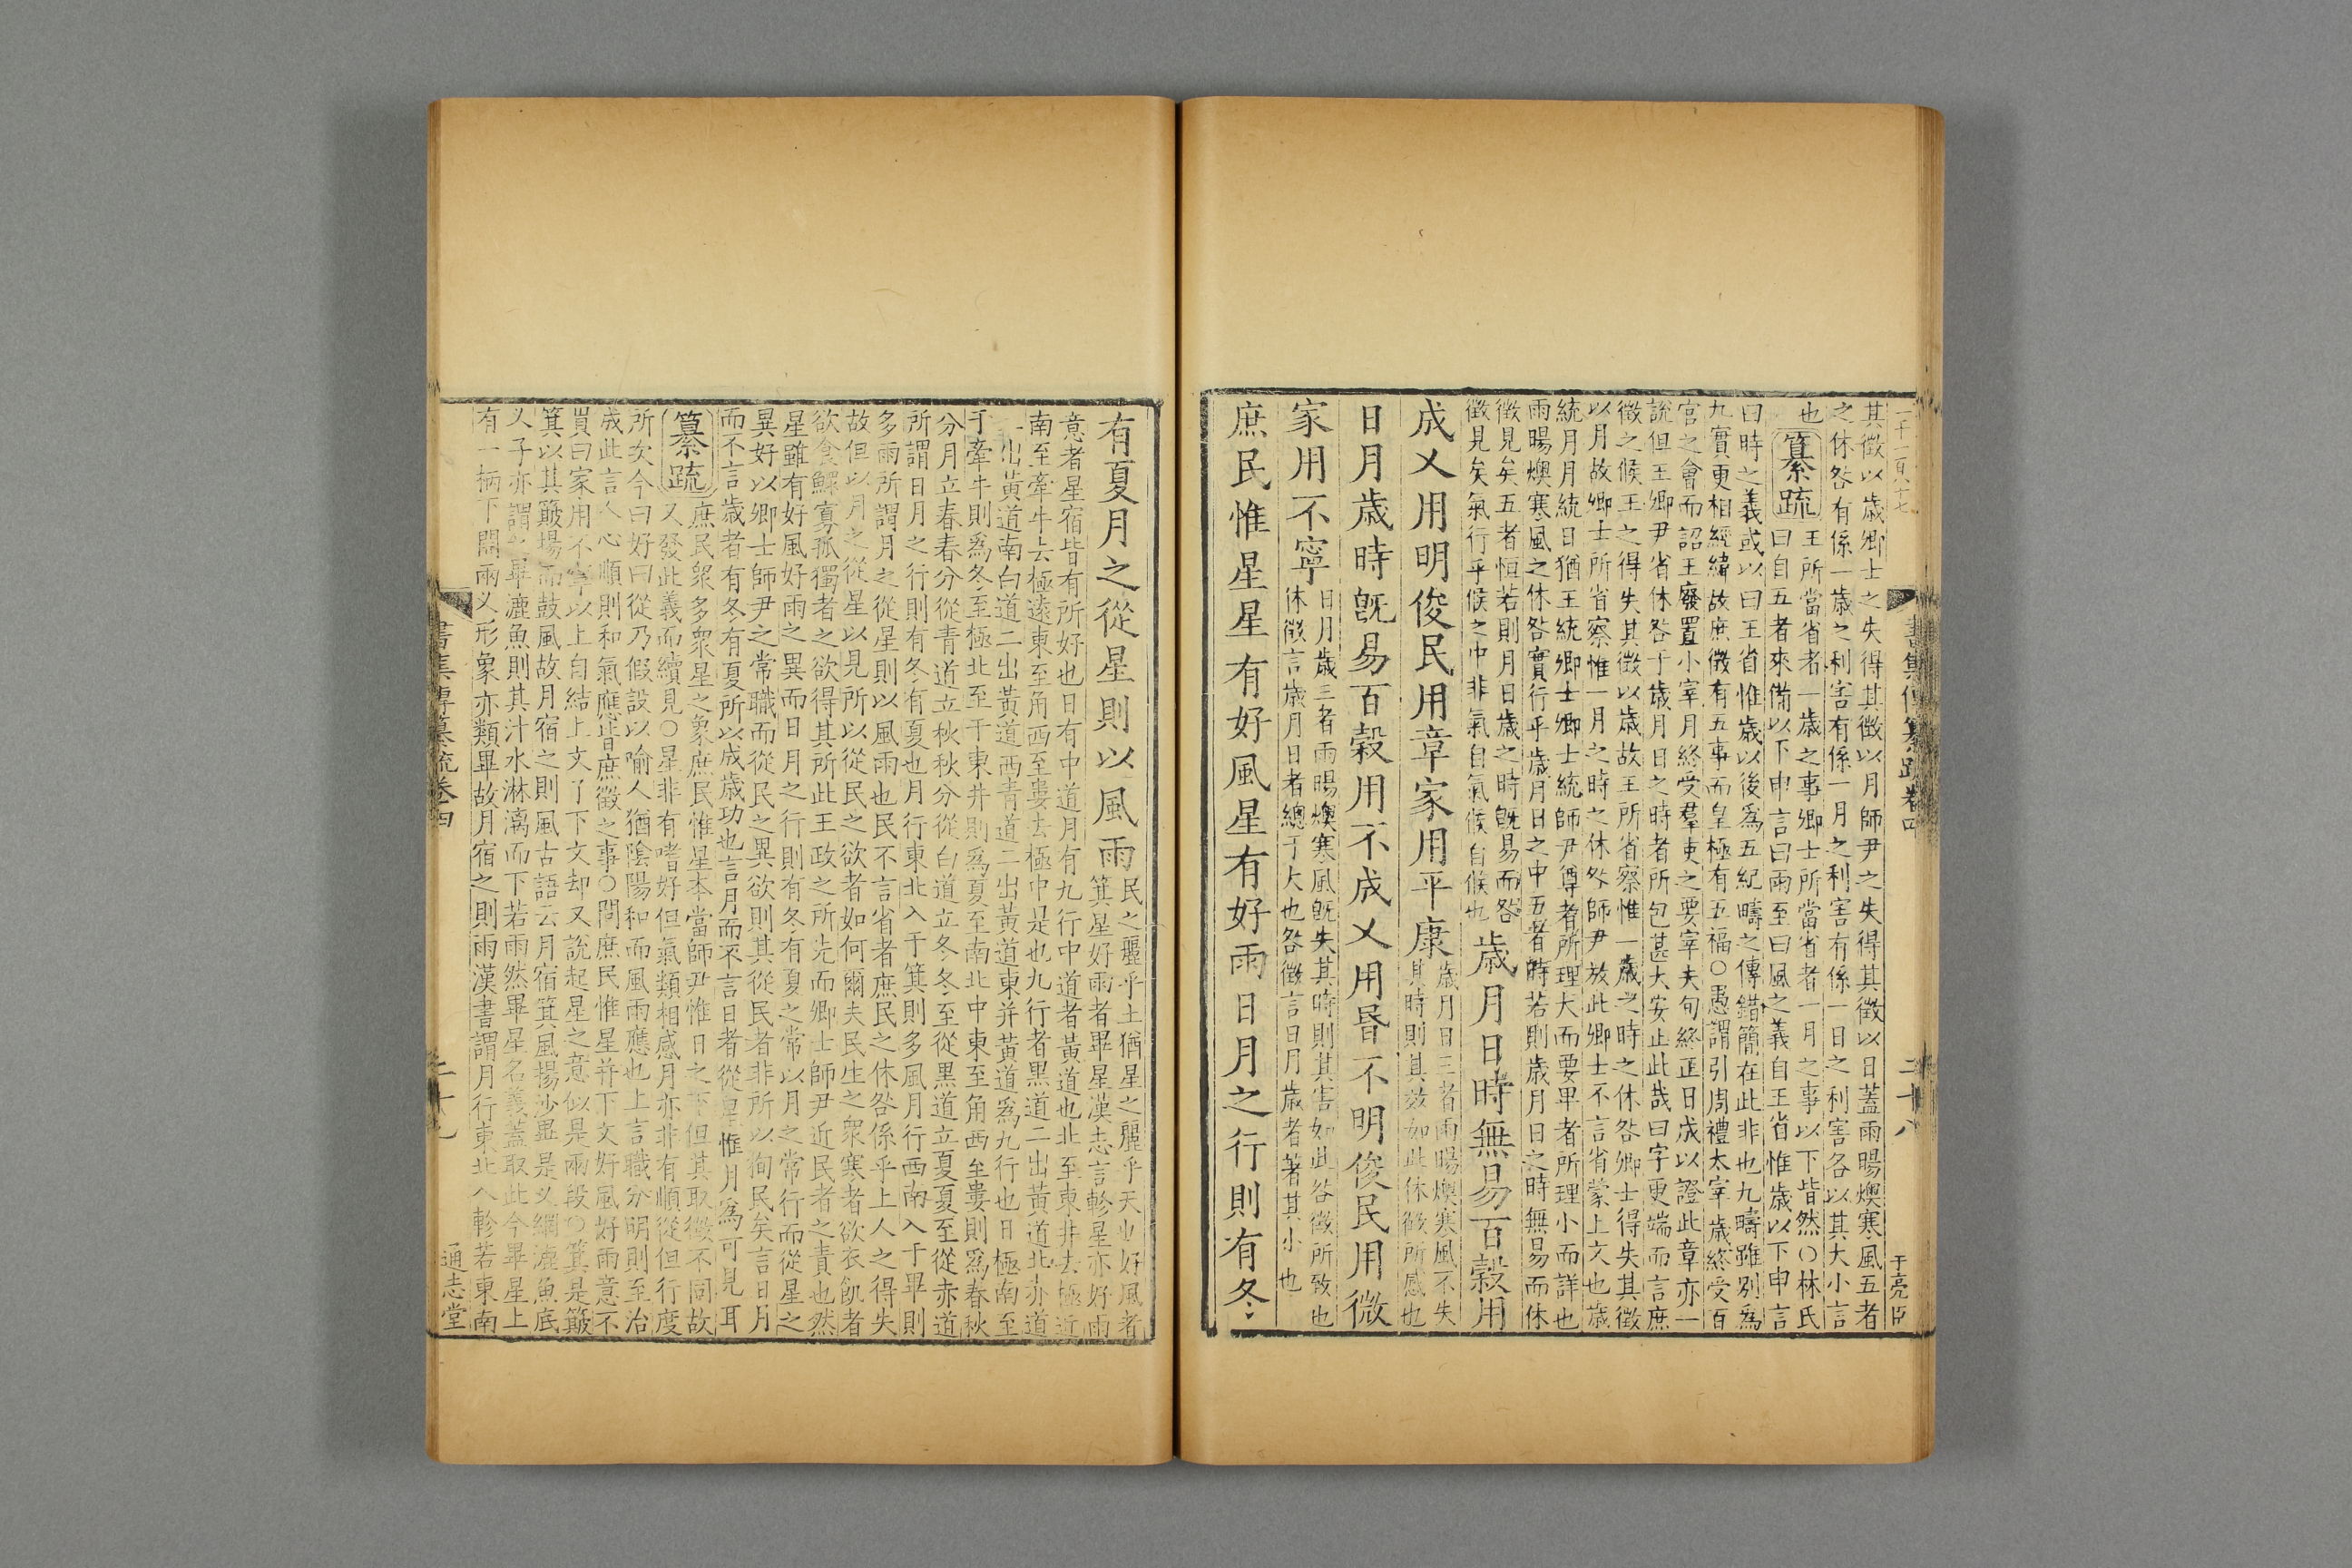 一千一百十七
書集傳纂疏卷四
二十八
于亮臣
其徵以歲卿士之失得其徵以月師尹之失得其徵以日蓋雨暘燠寒風五者
之休咎有係一歲之利害有係一月之利害有係一日之利害各以其大小言
也纂疏王所當省者一歲之事卿士所當省者一月之事以下皆然○林氏
曰自五者來備以下申言曰雨至曰風之義自王省惟歲以下申言
曰時之義或以曰王省惟歲以後為五紀疇之傳錯簡在此非也九疇雖別為
九實更相經緯故庶徵有五事而皇極有五福○愚謂引周禮太宰歲終受百
官之會而詔王廢置小宰月終受羣吏之要宰夫旬終正日成以證此章亦一
說但王卿尹省休咎于歲月日之時者所包甚大安止此哉曰字更端而言庶
徵之候王之得失其徵以歲故王所省察惟一歲之時之休咎卿士得失其徵
以月故卿士所省察惟一月之時之休咎師尹放此卿士不言省蒙上文也歲
統月月統日猶王統卿士卿士統師尹尊者所理大而要卑者所理小而詳也
雨暘燠寒風之休咎實行乎歲月日之中五者時若則歲月日之時無易而休
徵見矣五者恒若則月日歲之時旣易而咎
徵見矣氣行乎候之中非氣自氣候自候也
歲月日時無易百穀用
成乂用明俊民用章家用平康
歲月日三者雨暘燠寒風不失
其時則其效如此休徵所感也
日月歲時旣易百穀用不成乂用昬不明俊民用微
家用不寧
日月歲三者雨暘燠寒風旣失其時則其害如此咎徵所致也
休徵言歲月日者總于大也咎徵言日月歲者著其小也
庶民惟星星有好風星有好雨日月之行則有冬
有夏月之從星則以風雨
民之麗乎土猶星之麗乎天也好風者
箕星好雨者畢星漢志言軫星亦好雨
意者星宿皆有所好也日有中道月有九行中道者黃道也北至東井去極近
南至牽牛去極遠東至角西至婁去極中是也九行者黑道二出黃道北赤道
二出黃道南白道二出黃道西青道二出黃道東并黃道為九行也日極南至
于牽牛則為冬至極北至于東井則為夏至南北中東至角西至婁則為春秋
分月立春春分從青道立秋秋分從白道立冬冬至從黑道立夏夏至從赤道
所謂日月之行則有冬有夏也月行東北入于箕則多風月行西南入于畢則
多雨所謂月之從星則以風雨也民不言省者庶民之休咎係乎上人之得失
故但以月之從星以見所以從民之欲者如何爾夫民生之衆寒者欲衣飢者
欲食鰥寡孤獨者之欲得其所此王政之所先而卿士師尹近民者之責也然
星雖有好風好雨之異而日月之行則有冬有夏之常以月之常行而從星之
異好以卿士師尹之常職而從民之異欲則其從民者非所以徇民矣言日月
而不言歲者有冬有夏所以成歲功也言月而不言日者從星惟月為可見耳
纂疏庶民衆多衆星之象庶民惟星本當師尹惟日之下但其取徵不同故
又發此義而續見○星非有嗜好但氣類相感月亦非有順從但行度
所次今曰好曰從乃假設以喻人猶陰陽和而風雨應也上言職分明則至治
成此言人心順則和氣應皆庶徵之事○問庶民惟星并下文好風好雨意不
貫曰家用不寧以上自結上文了下文却又說起星之意似是兩段○箕是簸
箕以其簸揚而鼓風故月宿之則風古語云月宿箕風揚沙畢是乂網漉魚底
乂子亦謂之畢漉魚則其汁水淋漓而下若雨然畢星名義蓋取此今畢星上
有一柄下開兩乂形象亦類畢故月宿之則雨漢書謂月行東北入軫若東南
書集傳纂疏卷四
二十九
通志堂